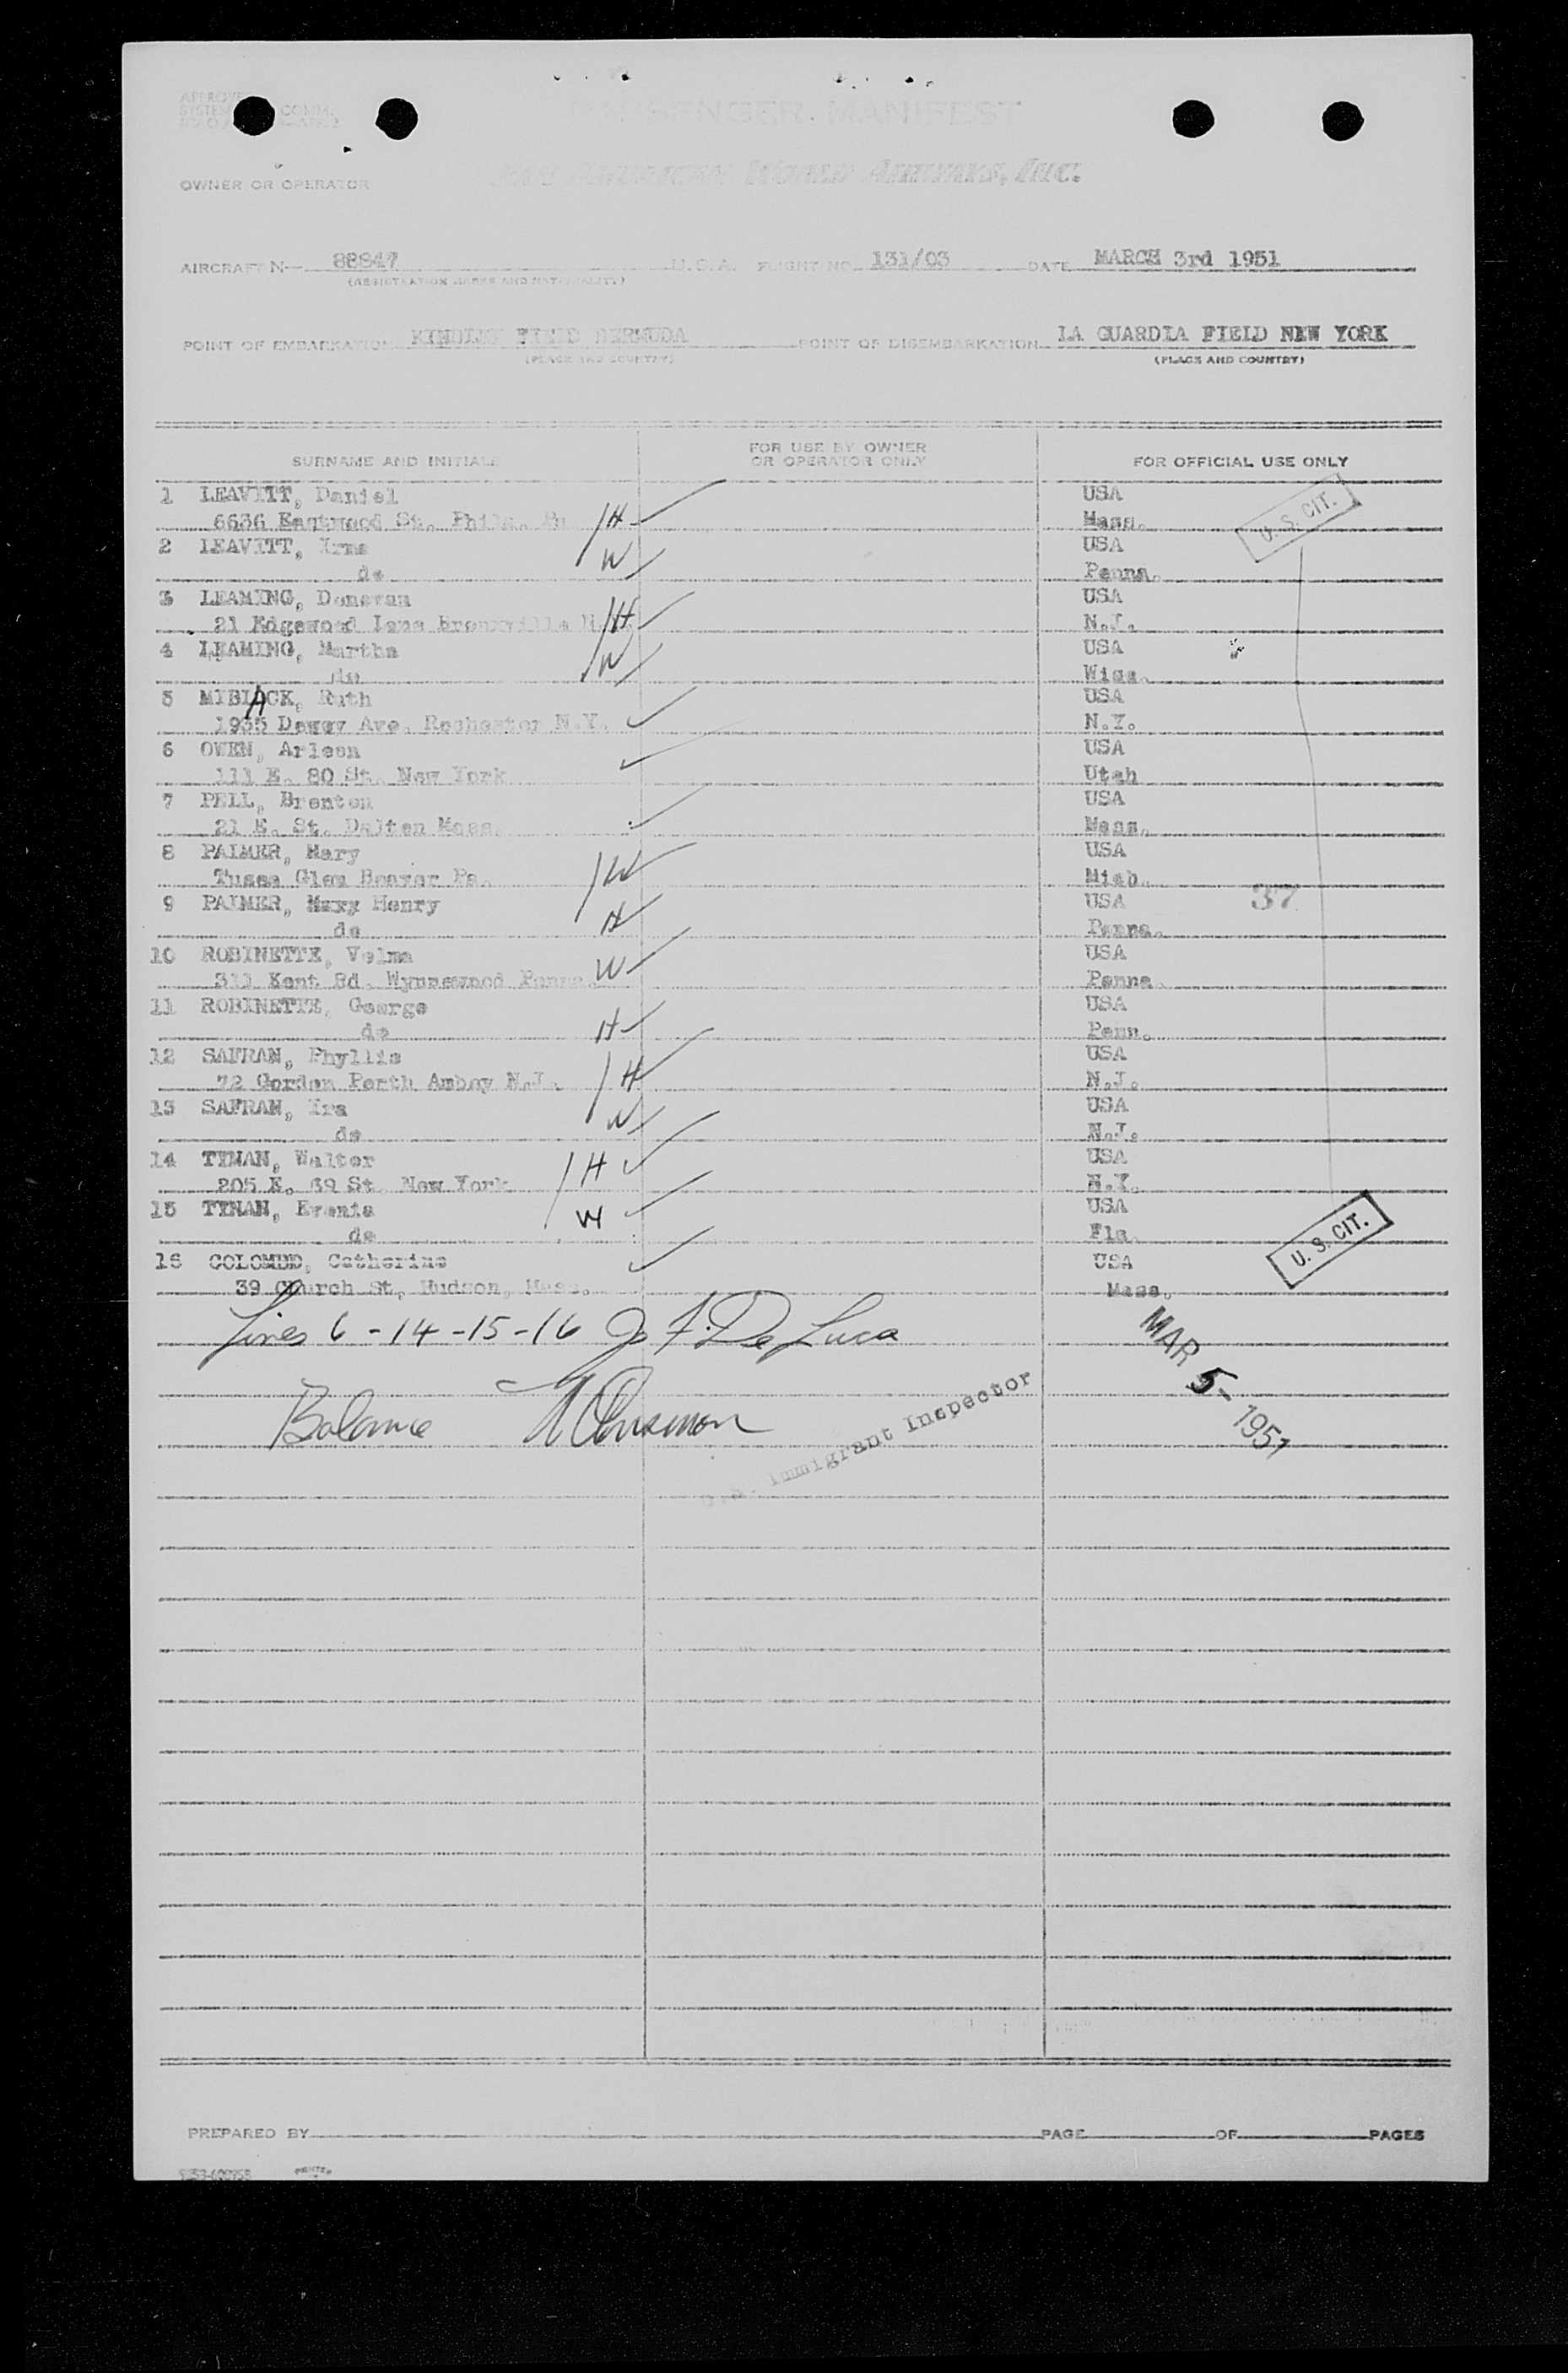 PASSENGER MANIFEST
OWNER OR OPERATOR PAN AMERICAN WORLD AIRWAYS, INC.
AIRCRAFT N— 88847 U.S.A. FLIGHT NO. 131/03 DATE MARCH 3rd 1951
(REGISTRATION MARKS AND NATIONALITY)
POINT OF EMBARKATION KINDLEY FIELD BERMUDA POINT OF DISEMBARKATION LA GUARDIA FIELD NEW YORK
(PLACE AND COUNTRY) (PLACE AND COUNTRY)
SURNAME AND INITIALS FOR USE BY OWNER OR OPERATOR ONLY FOR OFFICIAL USE ONLY
1 LEAVITT, Daniel USA
6636 Eastwood St. Phila. Pa H Mass. U. S. CIT.
2 LEAVITT, Irma USA
do W Penna.
3 LEAMING, Donovan USA
21 Edgewood Lane Bronxville N.Y. H N.J.
4 LEAMING, Martha USA
do W Wisc.
5 MIBLACK, Ruth USA
1935 Dewey Ave. Rochester N.Y. N.Y.
6 OWEN, Arleen USA
111 E. 80 St. New York Utah
7 PELL, Brenton USA
21 E. St. Dalton Mass. Mass.
8 PALMER, Mary USA
Glen Beaver Pa. W Mich.
9 PALMER, Henry USA 37
do H Penna.
10 ROBINETTE, Velma USA
311 Kent Rd. Wynnewood Penna. W Penna.
11 ROBINETTE, George USA
do H Penn.
12 SAFRAN, Phyllis USA
72 Gordon Perth Amboy N.J. H N.J.
13 SAFRAN, Ira USA
do W N.J.
14 TYNAN, Walter USA
205 E. 69 St. New York H N.Y.
15 TYNAN, USA
do W Fla.
16 COLOMBE, Catherine USA U. S. CIT.
39 Church St, Hudson, Mass. Mass.
Lines 6-14-15-16 Jo F. De Luca
MAR 5- 1951
Balance
Immigrant Inspector
PREPARED BY PAGE OF PAGES